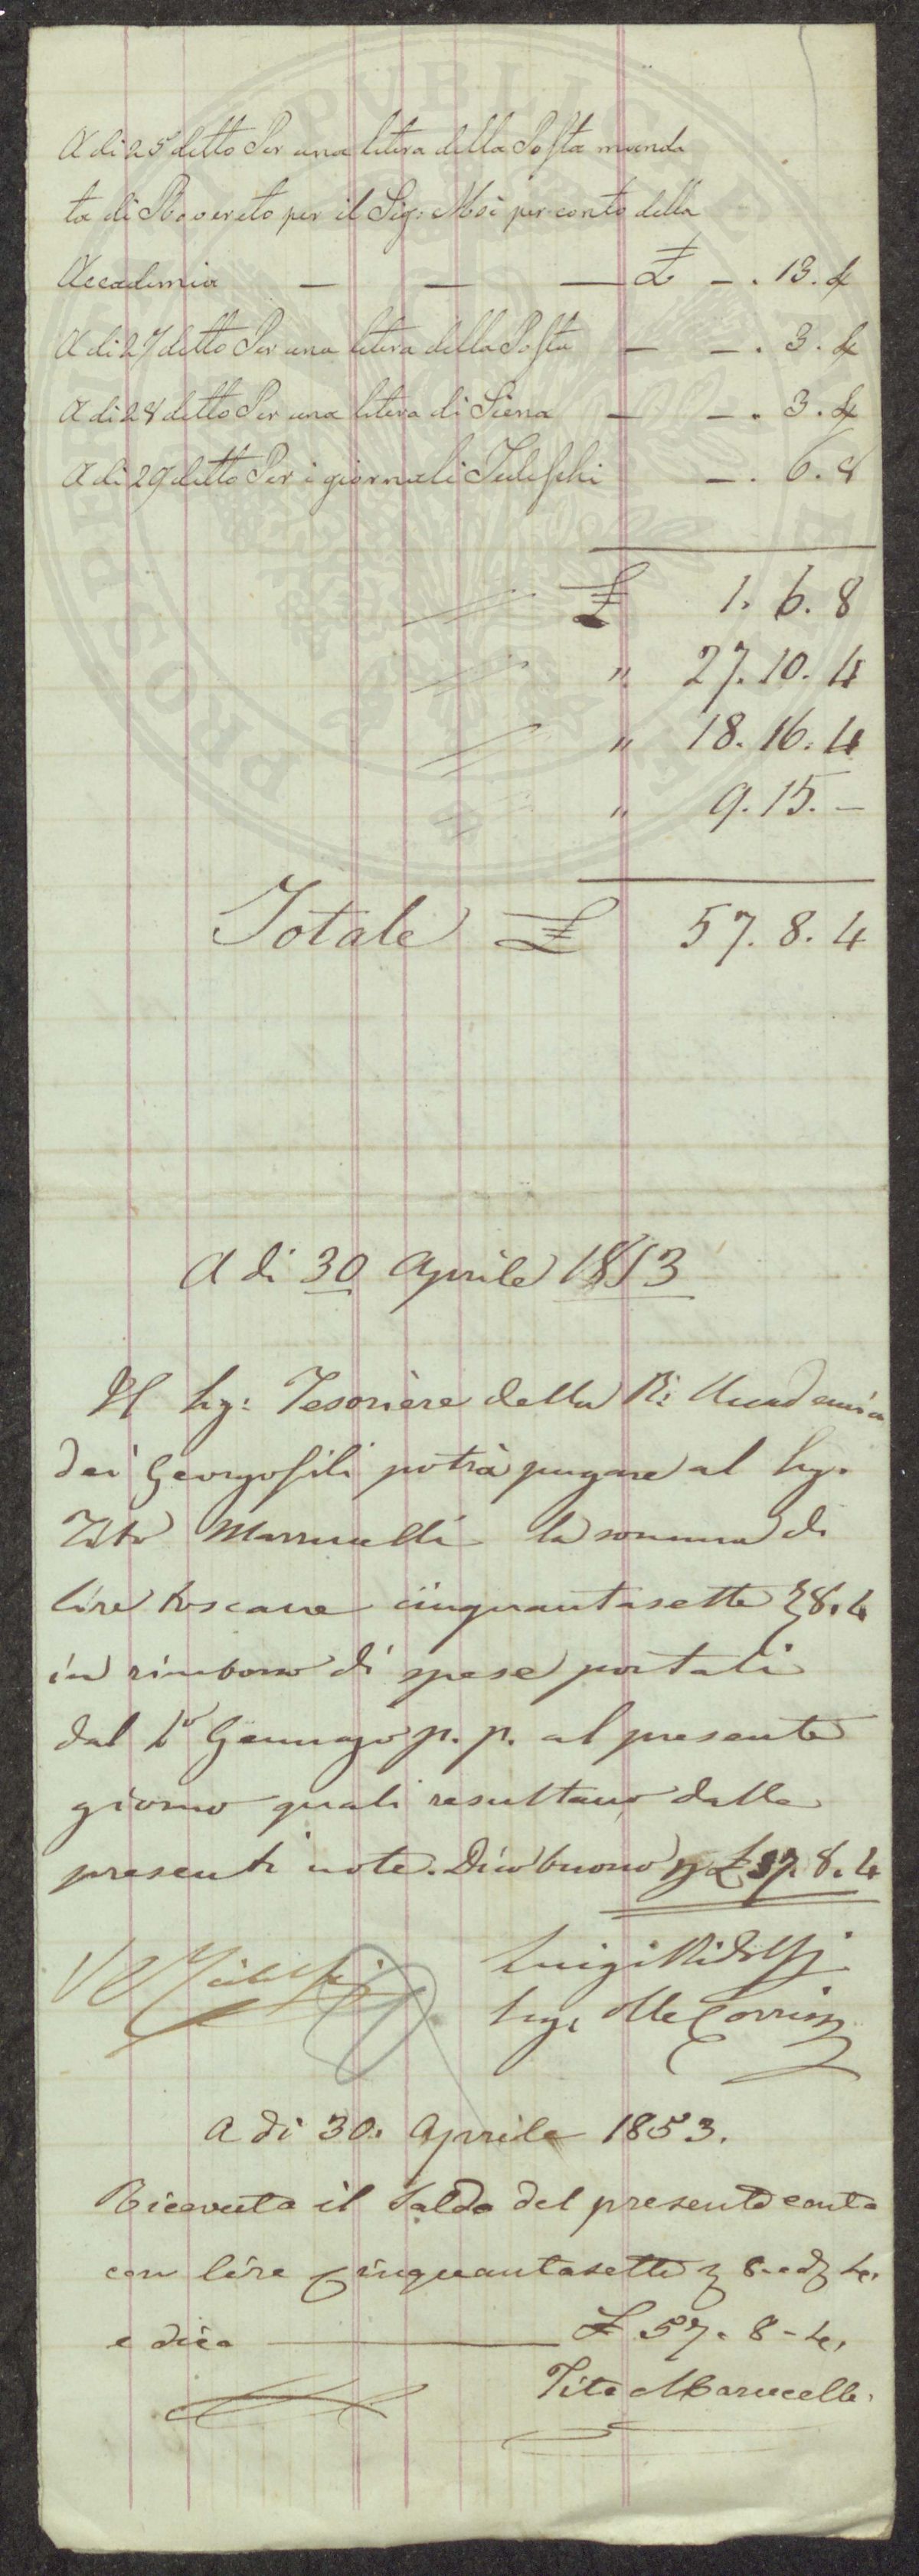 A di 25 detto Per una letera della Posta manda
ta di Rovereto per il Sig: Mói per conto della
Accademia — — — £ — . 13. 4
A di 27 detto Per una letera della Posta — — . 3. 4
A di 28 detto Per una letera di Siena — — . 3. 4
A di 29 detto Per i giornali Tedeschi — . 6. 8
£ 1. 6. 8
" 27. 10. 4
" 18. 16. 4
" 9. 15. —
Totale £ 57. 8. 4
A di 30 Aprile 1853
Il Sig: Tesoriere della R: Accademia
dei Georgofili potrà pagare al Sig.
Tito Marrucelli la somma di
lire toscane cinquantasette 8. 4
in rimborso di spese portali
dal 1° Gennajo p. p. al presente
giorno quali resultano dalle
presenti note. Dico buono p £ 57. 8. 4
V
Luigi Ridolfi
Seg. Corrisp
A di 30. Aprile 1853.
Ricevuto il Saldo del presente conto
con lire Cinquantasette 8. e d 4.
e dico — £ 57. 8 - 4.
Tito Marucelli.
PROSPERITATI PUBLICAE AUGENDAE